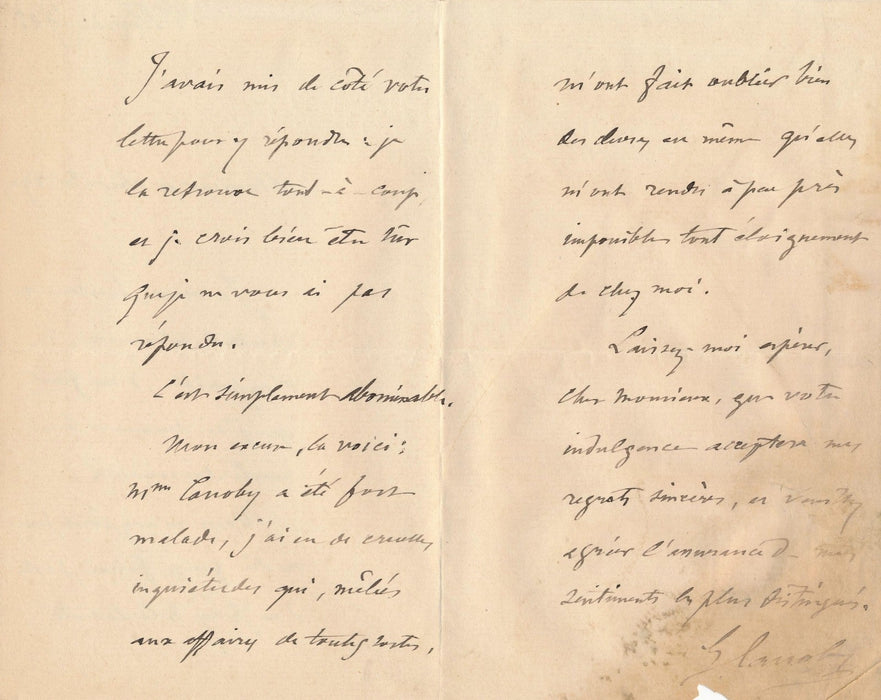 J'avais mis de côté votre
lettre pour y répondre : je
la retrouve tout-à-coup,
et je crois bien être sûr
que je ne vous ai pas
répondu.
C'est simplement abominable.
Mon excuse, la voici :
Mme Canoby a été fort
malade, j'ai eu de cruelles
inquiétudes qui, mêlées
aux affaires de toutes sortes,
m'ont fait oublier bien
des choses en même qu'elles
m'ont rendu à peu près
impossibles tout éloignement
de chez moi.
Laissez-moi espérer,
cher Monsieur, que votre
indulgence acceptera mes
regrets sincères, et veuillez
agréer l'assurance de mes
sentiments les plus distingués.
G Canoby